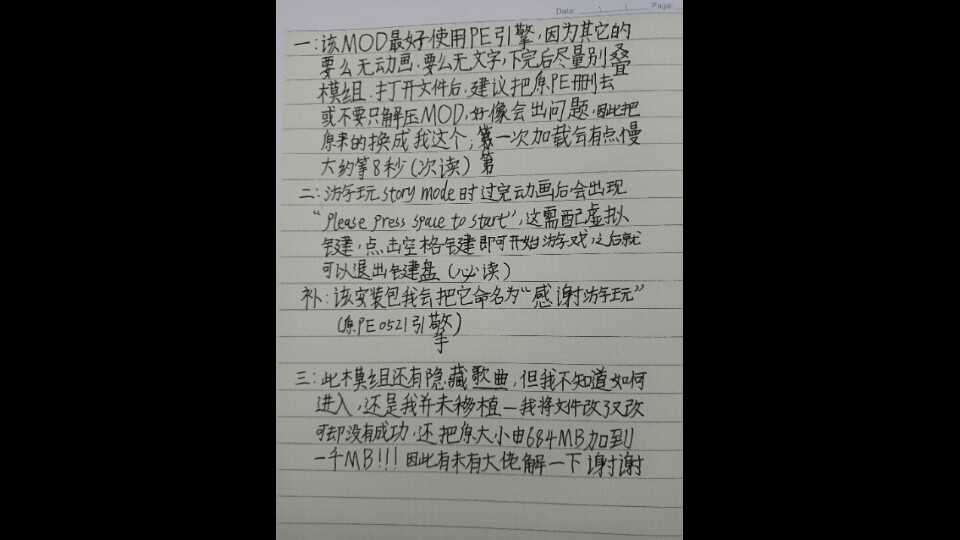 Date: Page:
一:该MOD最好使用PE引擎,因为其它的
要么无动画.要么无文字,下完后尽量别叠
模组.打开文件后.建议把原PE删去
或不要只解压MOD,好像会出问题.因此把
原来的换成我这个;第一次加载会有点慢
大约等8秒(次读)第
二:游玩story mode时过完动画后会出现
“please press space to start”,这需配虚拟
键,点击空格键即可开始游戏,之后就
可以退出键盘(必读)
补:该安装包我会把它命名为“感谢游玩”
(原PE0521引擎)
三:此模组还有隐藏歌曲,但我不知道如何
进入,还是我并未移植—我将文件改了又改
可却没有成功,还把原大小由684MB加到
一千MB!!!因此有未有大佬解一下谢谢